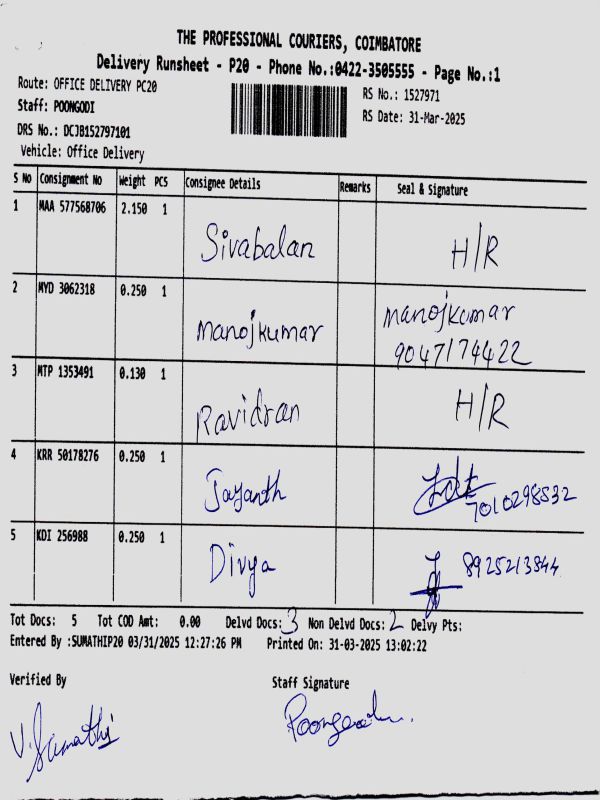 THE PROFESSIONAL COURIERS, COIMBATORE
Delivery Runsheet - P20 - Phone No.:0422-3505555 - Page No.:1
Route: OFFICE DELIVERY PC20
RS No.: 1527971
Staff: POONGODI
RS Date: 31-Mar-2025
DRS No.: DCJB152797101
Vehicle: Office Delivery
S No Consignment No Weight PCS Consignee Details Remarks Seal & Signature
1 MAA 577568706 2.150 1 Sivabalan H/R
2 MYD 3062318 0.250 1 Manojkumar Manojkumar
9047174422
3 MTP 1353491 0.130 1 Ravidran H/R
4 KRR 50178276 0.250 1 Jayanth 7010298532
5 KDI 256988 0.250 1 Divya 8925213844
Tot Docs: 5 Tot COD Amt: 0.00 Delvd Docs: 3 Non Delvd Docs: 2 Delvy Pts:
Entered By :SUMATHIP20 03/31/2025 12:27:26 PM Printed On: 31-03-2025 13:02:22
Verified By Staff Signature
V. Sumathi